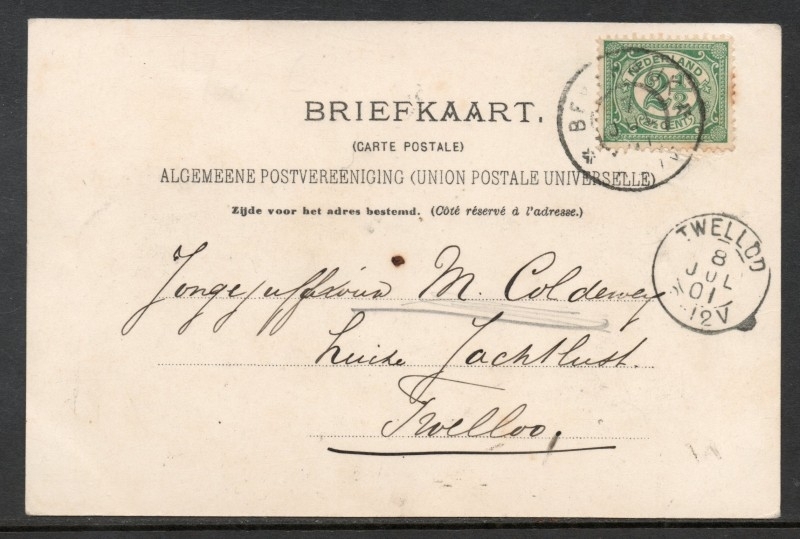 NEDERLAND
2½
CENT
BRIEFKAART.
(CARTE POSTALE)
ALGEMEENE POSTVEREENIGING (UNION POSTALE UNIVERSELLE)
Zijde voor het adres bestemd. (Côté réservé à l'adresse.)
TWELLOO
8
JUL
01
12V
Jongejuffrouw M. Coldewey
huize Jachtlust.
Twelloo,